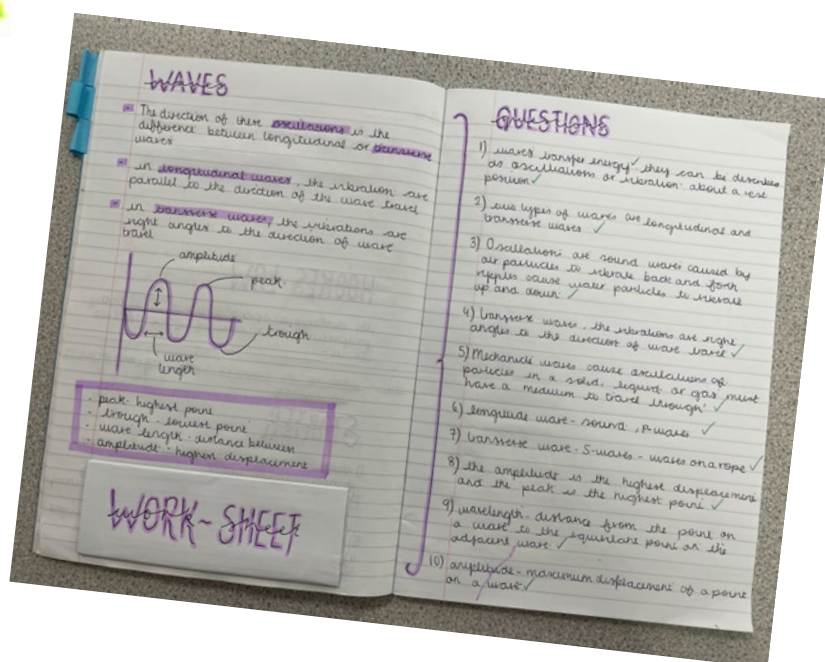 WAVES
The direction of these oscillations is the
difference between longitudinal or transverse
waves
in longitudinal waves, the vibration are
parallel to the direction of the wave travel
in transverse waves, the vibrations are
right angles to the direction of wave
travel
amplitude
peak
trough
wave
length
- peak - highest point
- trough - lowest point
- wave length - distance between
- amplitude - highest displacement
WORK-SHEET
QUESTIONS
1) waves transfer energy ✓ they can be described
as oscillations or vibration about a rest
position ✓
2) two types of waves are longitudinal and
transverse waves ✓
3) Oscillations are sound waves caused by
air particles to vibrate back and forth
ripples cause water particles to vibrate
up and down ✓
4) transverse waves, the vibrations are right
angles to the direction of wave travel ✓
5) Mechanical waves cause oscillations of
particles in a solid, liquid or gas must
have a medium to travel through ✓
6) longitude wave - sound, P-waves ✓
7) transverse wave - S-waves - waves on a rope ✓
8) the amplitude is the highest displacement
and the peak is the highest point ✓
9) wavelength - distance from the point on
a wave to the equivalent point on the
adjacent wave ✓
10) amplitude - maximum displacement of a point
on a wave ✓